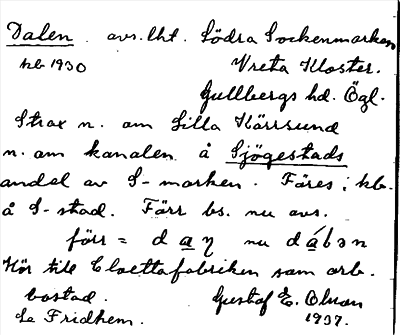 Dalen. avs. lht. Södra Sockenmarken
kb 1930 Vreta Kloster.
Gullbergs hd. Ögl.
Strax n. om Lilla Kärrsund
n. om kanalen å Sjögestads
andel av S-marken. Färes i kb.
å S-stad. Förr bs. nu avs.
förr = daŋ nu dábən
Hör till Cloettafabriken som arb.
bostad. Gustaf E.
Se Fridhem. 1937.